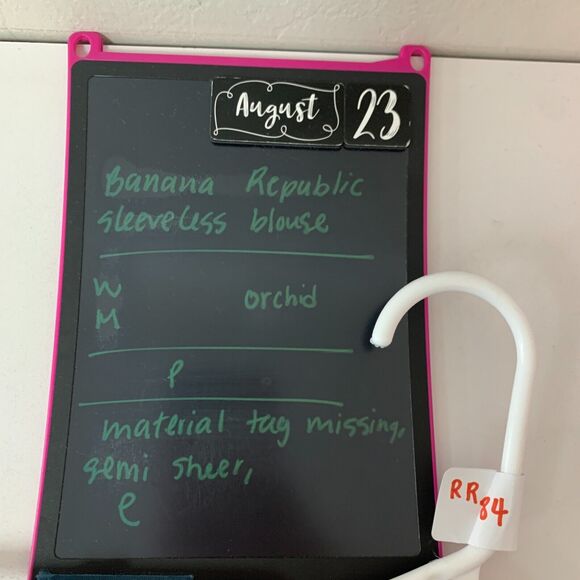 August 23
Banana Republic
sleeveless blouse
W orchid
M
P
material tag missing,
semi sheer,
e
RR
84